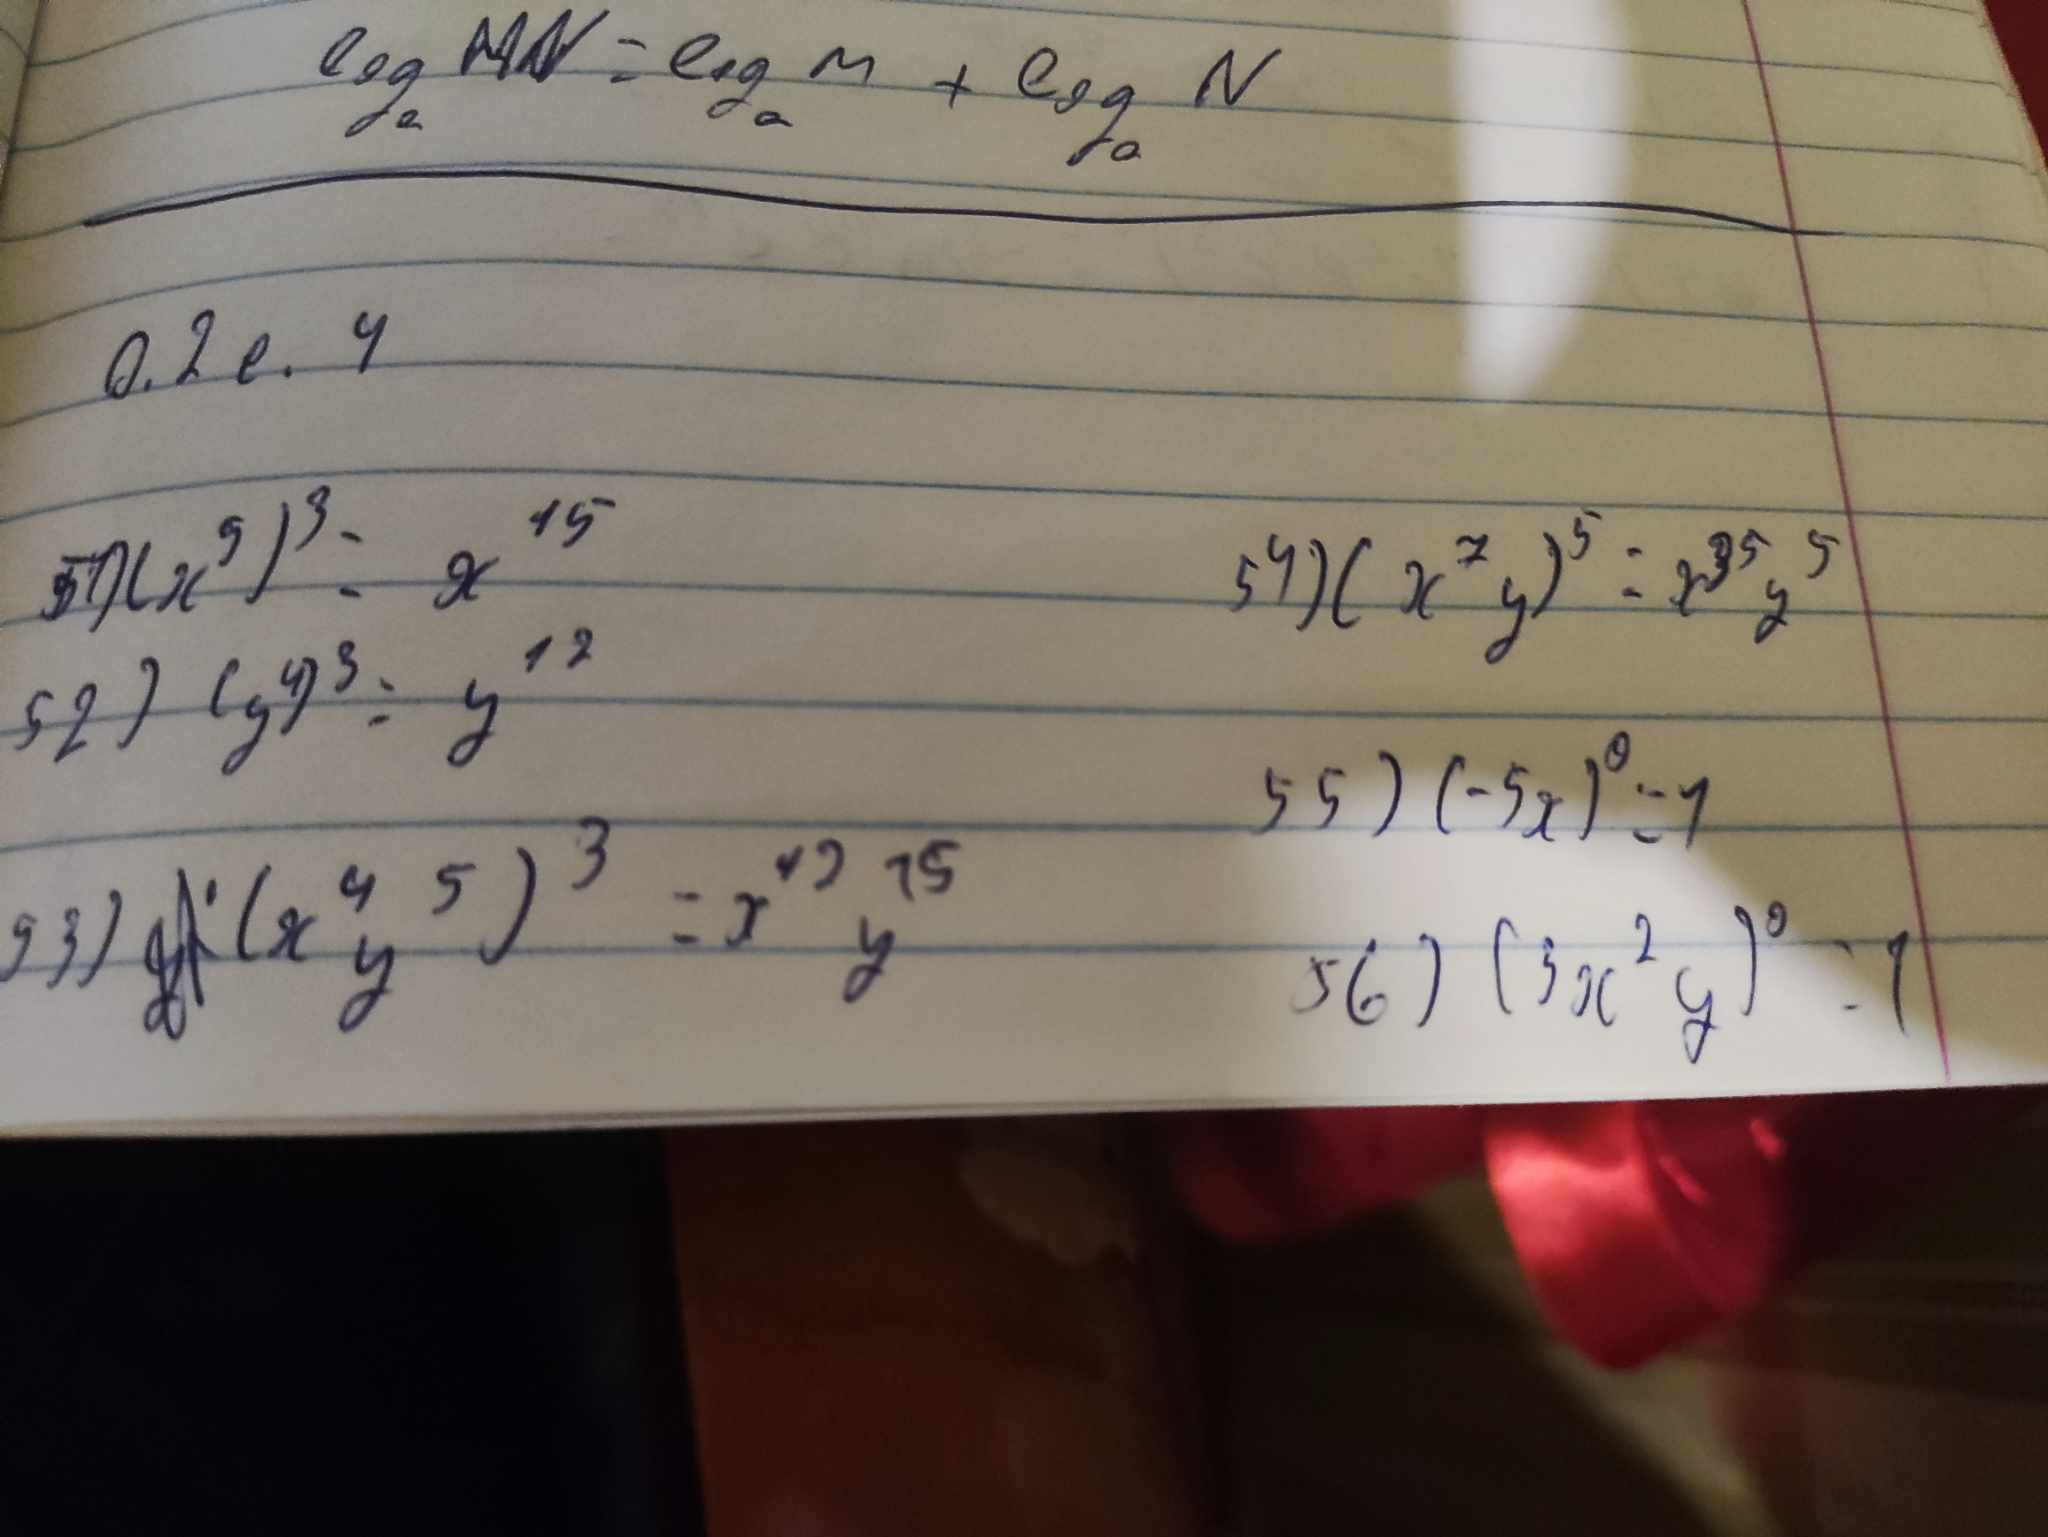 log_a MN = log_a M + log_a N
0.2 e. 4
51) (x^5)^3 = x^15
52) (y^4)^3 = y^12
53) (x^4 y^5)^3 = x^12 y^15
54) (x^7 y)^5 = x^35 y^5
55) (-5x)^0 = 1
56) (3x^2 y)^0 = 1